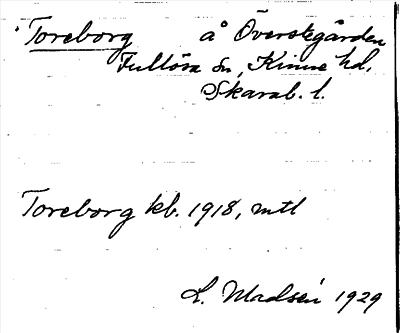 Toreborg å Överstegården
Fullösa sn, Kinne hd.
Skarab. l.
Toreborg kb. 1918, mtl
L. Madsén 1929